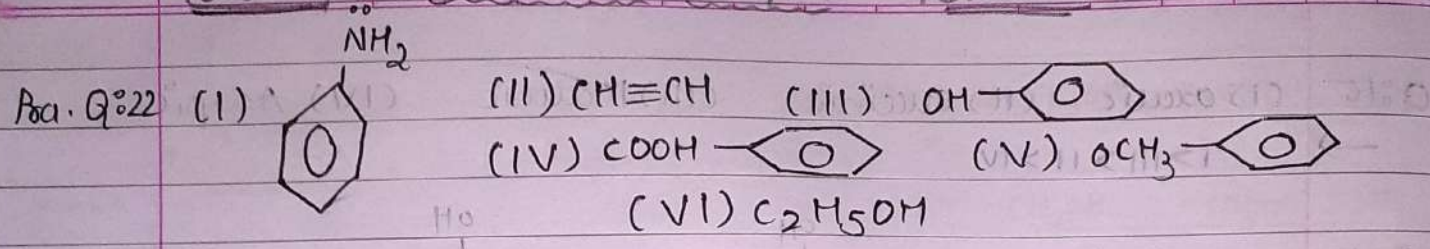 N̈H₂
Pra. Q:22 (I) (II) CH≡CH (III) OH
(IV) COOH (V) OCH₃
(VI) C₂H₅OH